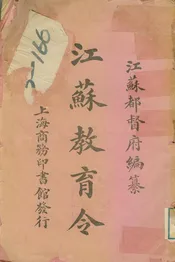 江蘇都督府編纂
江蘇教育令
上海商務印書館發行